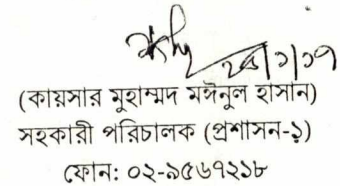 ২৫/১/১৭
(কায়সার মুহাম্মদ মঈনুল হাসান)
সহকারী পরিচালক (প্রশাসন-১)
ফোন: ০২-৯৫৬৭২১৮